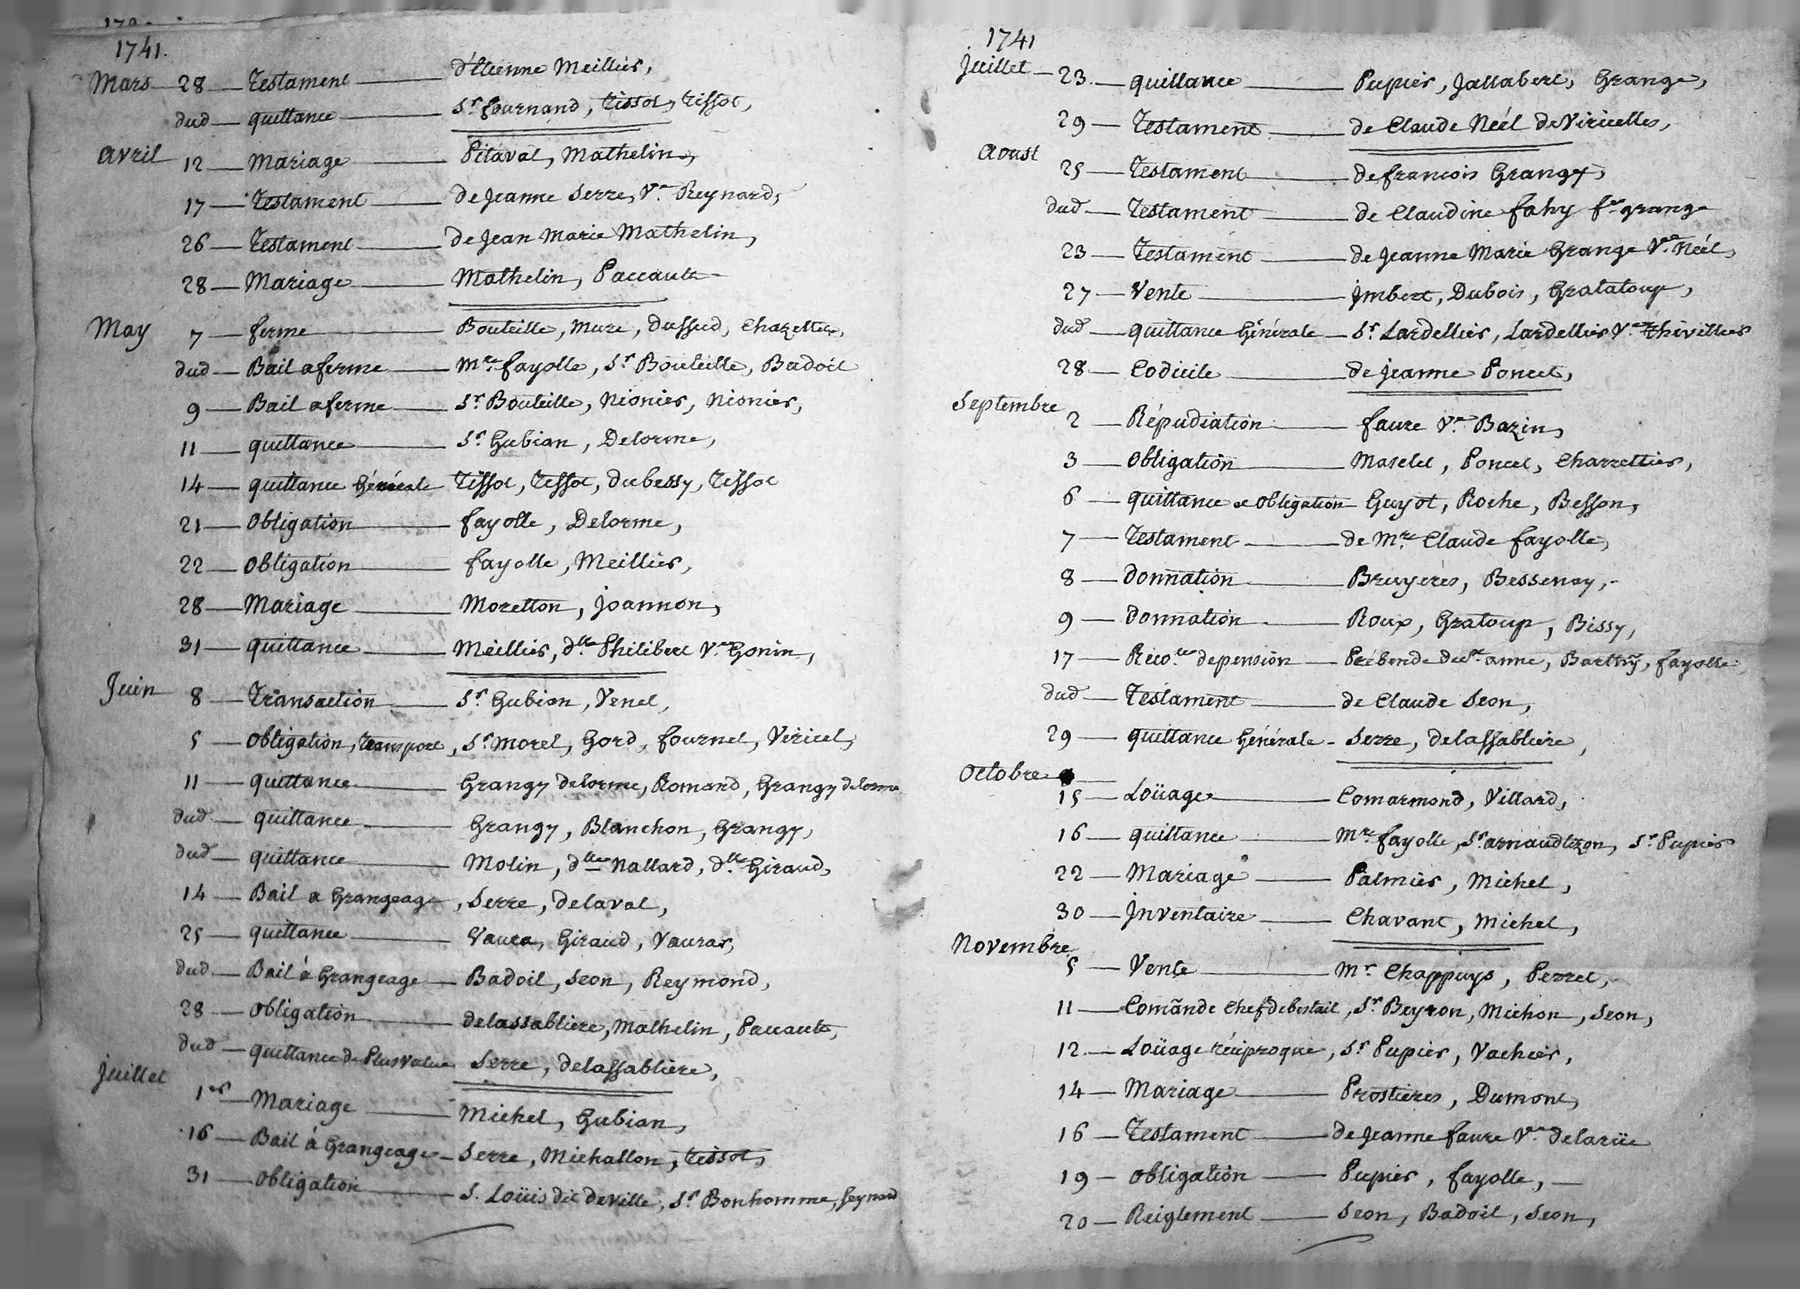 1741.
Mars 28 Testament d'Etienne Meillier,
dud quittance Sr. fournand, Tissot, Tissot,
avril 12 Mariage Pitaval, Mathelin,
17 Testament de Jeanne Serre, Ve. Reynard,
26 Testament de Jean Marie Mathelin,
28 Mariage Mathelin, Paccault
May 7 ferme Bouteille, Mure, Dussud, Chazelles,
dud Bail a ferme Mre. fayolle, Sr. Bouteille, Badoil
9 Bail a ferme Sr. Bouteille, Nionier, Nionier,
11 quittance Sr. Gubian, Delorme,
14 quittance Générale Tissot, Tissot, Dubessy, Tissot
21 Obligation fayolle, Delorme,
22 Obligation fayolle, Meillier,
28 Mariage Moretton, Joannon,
31 quittance Meillier, dlle. Philibert Ve. Gonin,
Juin 8 Transaction Sr. Gubian, Venet,
5 Obligation, Transport, Sr. Morel, Gord, fournel, Vericel,
11 quittance Grangy delorme, Romand, Grangy delorme
dud quittance Grangy, Blanchon, Grangy,
dud quittance Molin, dlle Nallard, dlle. Giraud,
14 Bail a Grangeage, Serre, delaval,
25 quittance Giraud, Vauras,
dud Bail à Grangeage Badoil, Seon, Reymond,
28 Obligation delassabliere, Mathelin, Paccault,
dud quittance de Plus Value Serre, delassabliere,
Juillet 1er Mariage Michel, Gubian,
16 Bail à Grangeage Serre, Michallon, Tissot,
31 Obligation S. Loüis dit deville, Sr. Bonhomme,
1741
Juillet 23 quittance Pupier, Jallabert, Grange,
29 Testament de Claude Néél de Viricelles,
Aoust 25 Testament de francois Grangy,
dud Testament de Claudine fahy fe. grange
23 Testament de Jeanne Marie Grange Ve. Néél,
27 Vente Jmbert, Dubois, Grataloup,
dud quittance Générale Sr. Lardellier, Lardellier Ve. Thevillier
28 Codicile de Jeanne Poncet,
Septembre 2 Répudiation faure Ve. Bazin,
3 Obligation Maselet, Poncet, Charrettier,
6 quittance et Obligation Guyot, Roche, Besson,
7 Testament de Mre. Claude fayolle,
8 Donnation Bruyeres, Bessenay,
9 Donnation Roux, Gratoup, Bissy,
17 Reco.ce de pension Prébende de Ste. anne, Barthy, fayolle
dud Testament de Claude Seon,
29 quittance Générale Serre, delassabliere,
Octobre
15 Loüage Comarmond, Villard,
16 quittance Mre. fayolle, Sr. arnaudtizon, Sr. Pupier
22 Mariage Palmier, Michel,
30 Jnventaire Chavant, Michel,
Novembre 5 Vente Mr. Chappuys, Perret,
11 Comãnde Chef de bestail, Sr. Beyron, Michon, Seon,
12 Loüage réciproque, Sr. Pupier, Vacher,
14 Mariage Prostieres, Dumont,
16 Testament de Jeanne faure Ve. delarüe
19 Obligation Pupier, fayolle,
20 Reiglement Seon, Badoil, Seon,